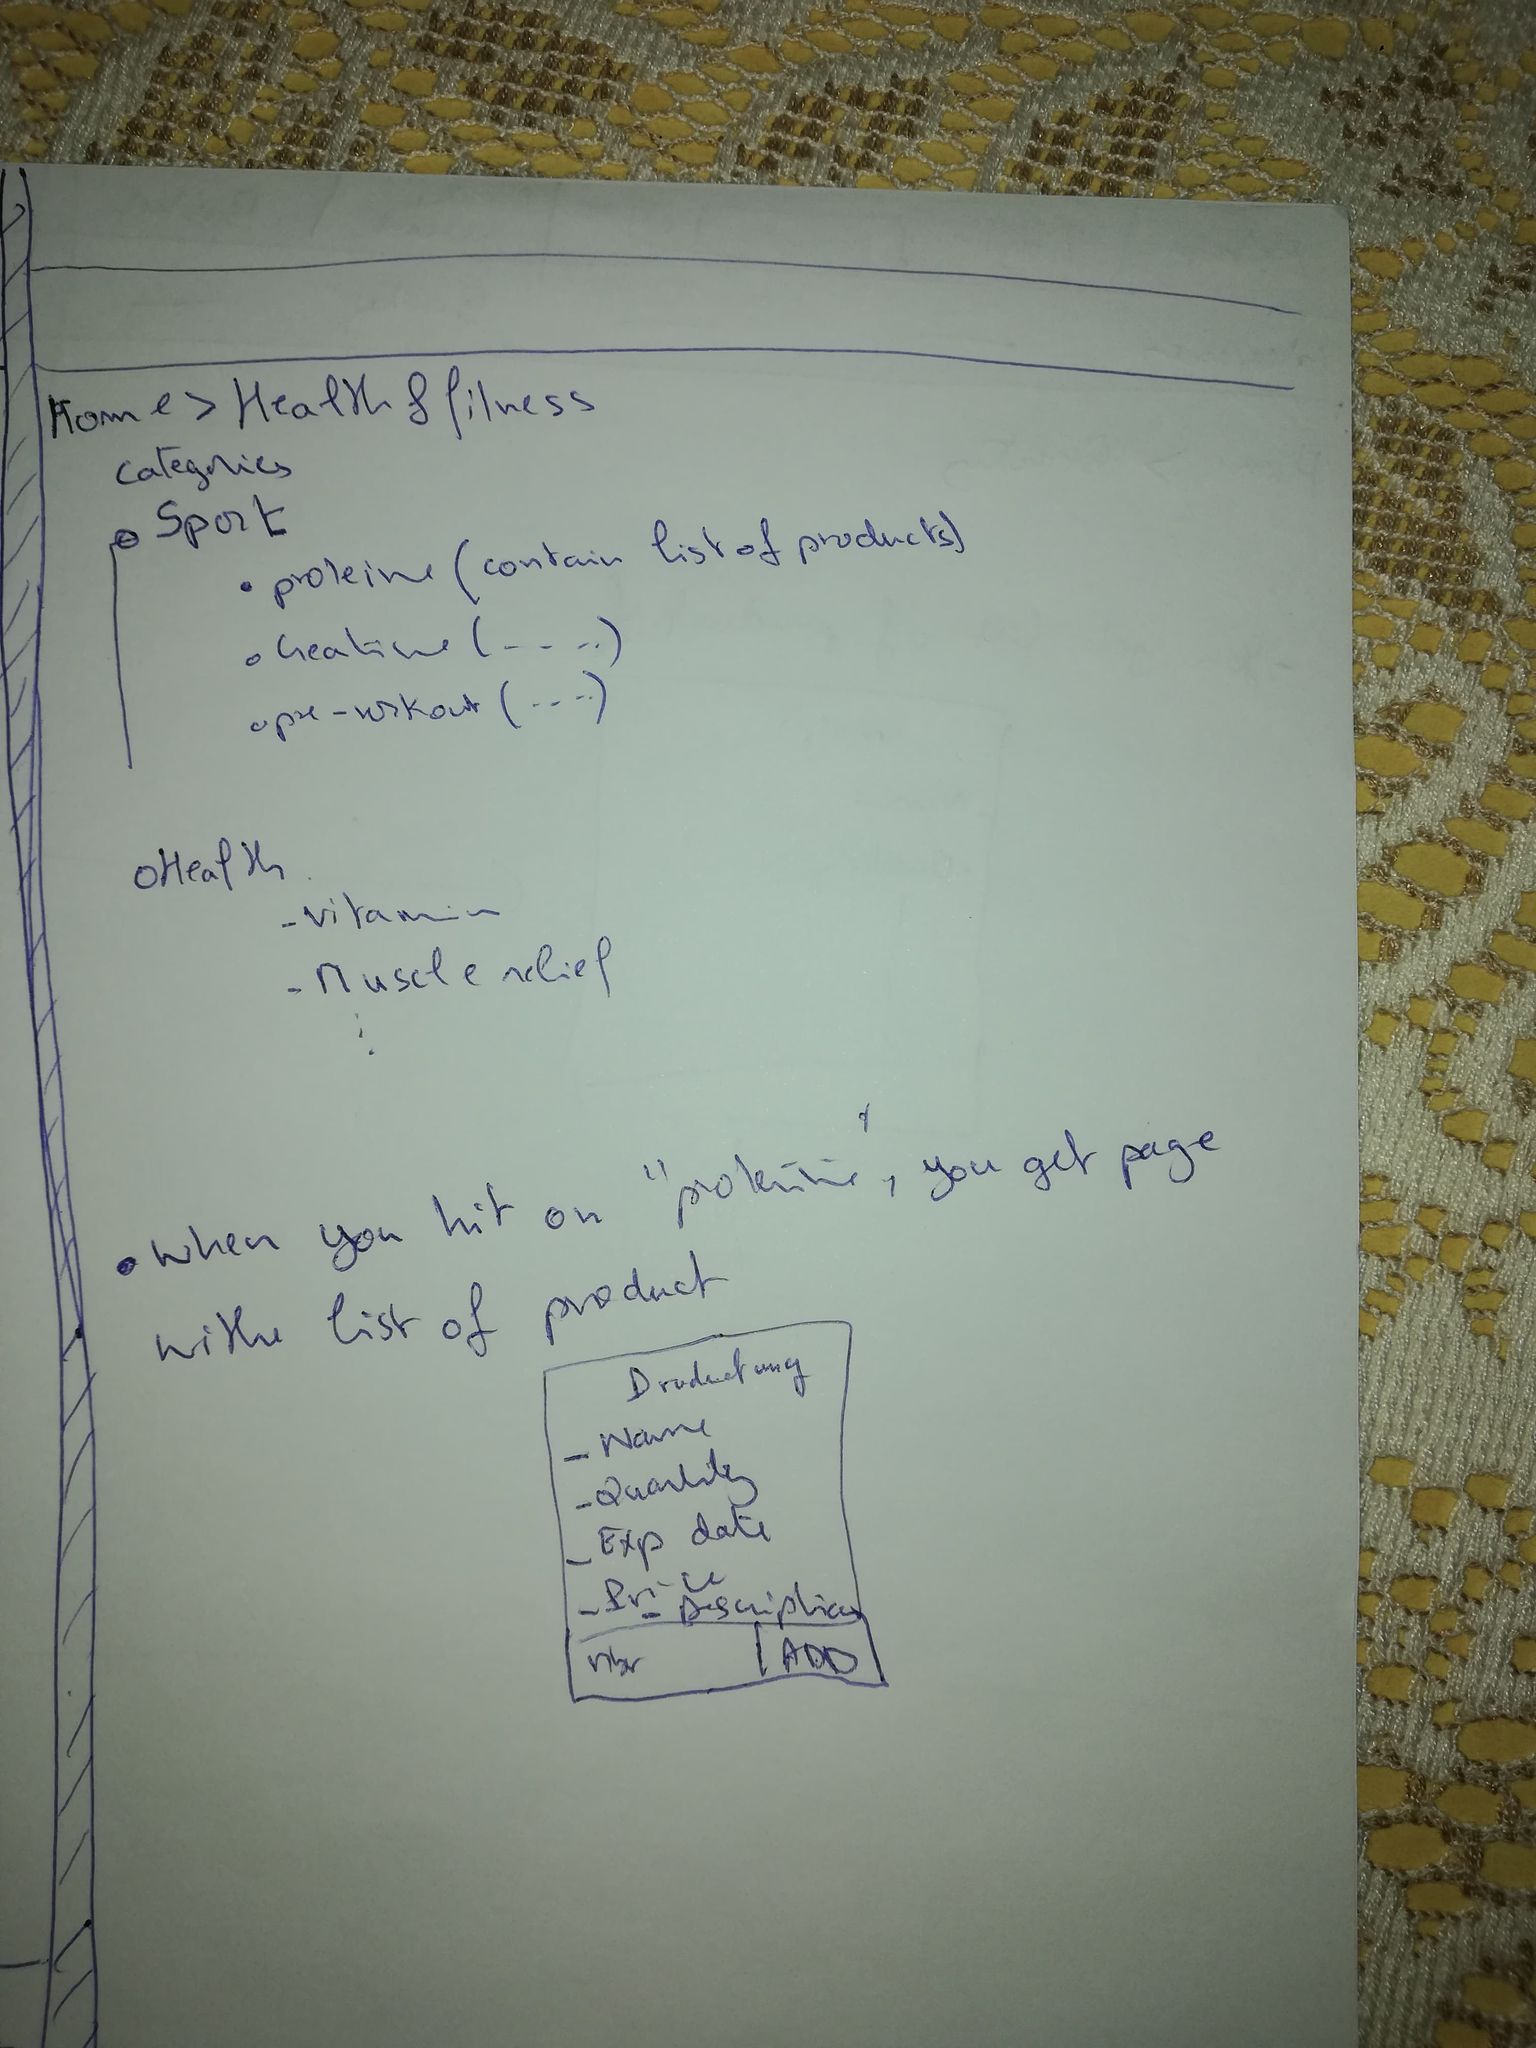 Home > Health & fitness
Categories
Sport
• proteine (contain list of products)
• Creatine (- - - ..)
• pre-workout (- - -..)
Health
- vitamin
- Muscle relief
⋮
• when you hit on "proteine", you get page
withe list of product
Product img
- Name
- Quantity
- Exp date
- Price
- Description
ADD